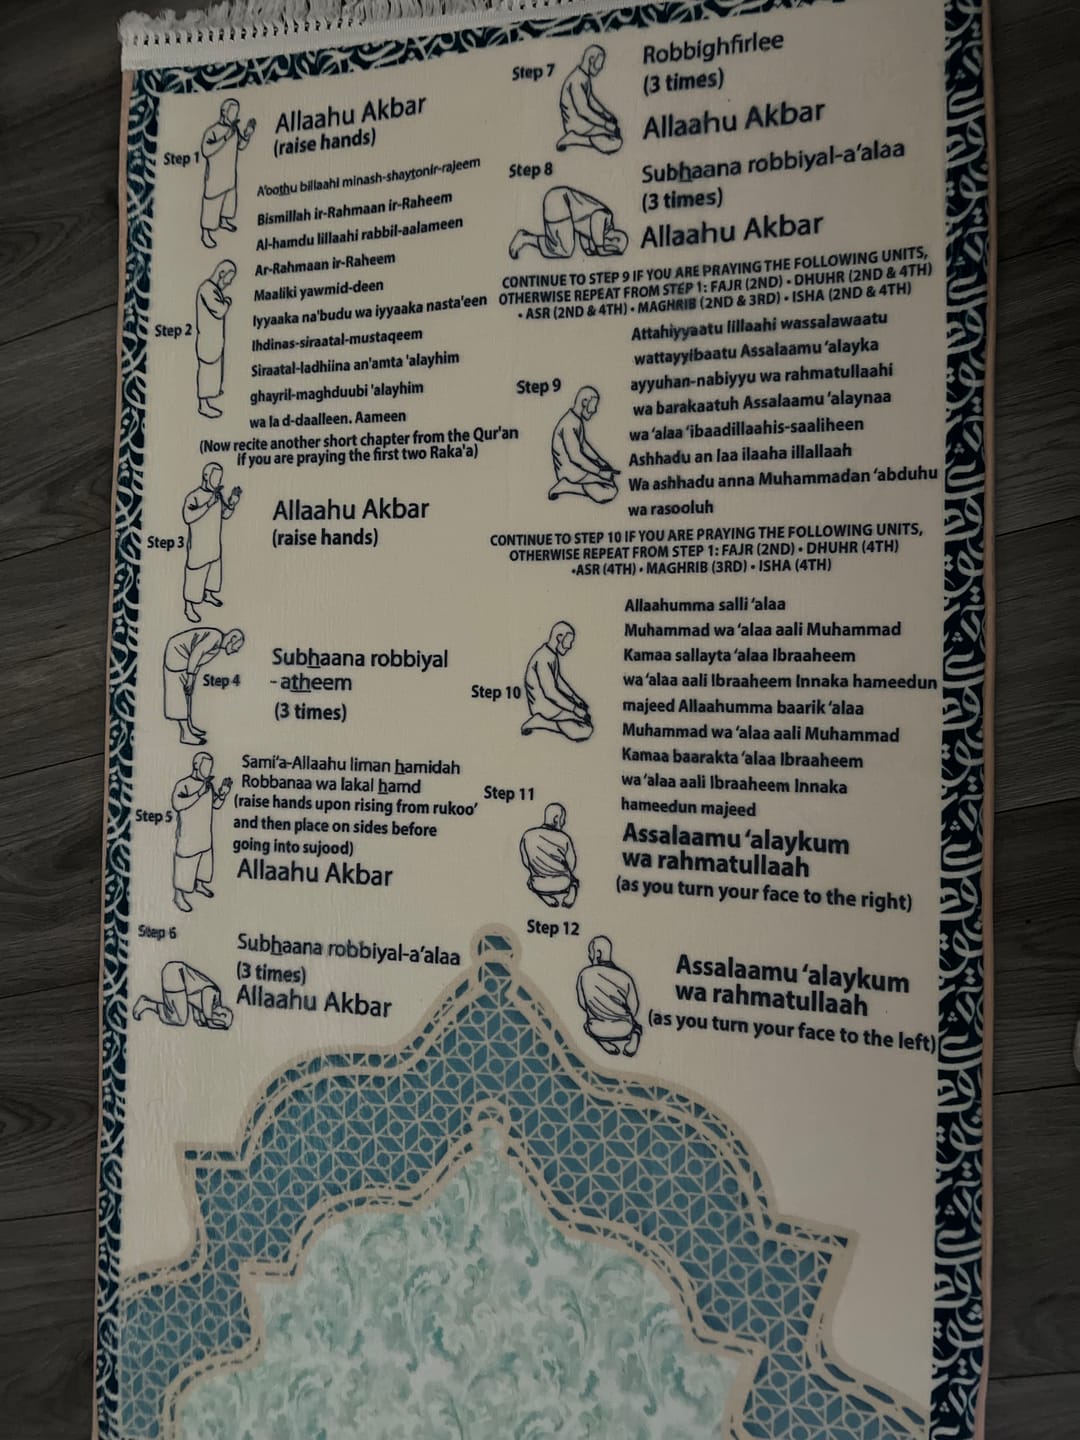 Step 1
Allaahu Akbar
(raise hands)
A'oothu billaahi minash-shaytonir-rajeem
Bismillah ir-Rahmaan ir-Raheem
Al-hamdu lillaahi rabbil-aalameen
Ar-Rahmaan ir-Raheem
Maaliki yawmid-deen
Step 2
Iyyaaka na'budu wa iyyaaka nasta'een
Ihdinas-siraatal-mustaqeem
Siraatal-ladhiina an'amta 'alayhim
ghayril-maghduubi 'alayhim
wa la d-daalleen. Aameen
(Now recite another short chapter from the Qur'an
If you are praying the first two Raka'a)
Step 3
Allaahu Akbar
(raise hands)
Step 4
Subhaana robbiyal
-atheem
(3 times)
Step 5
Sami'a-Allaahu liman hamidah
Robbanaa wa lakal hamd
(raise hands upon rising from rukoo'
and then place on sides before
going into sujood)
Allaahu Akbar
Step 6
Subhaana robbiyal-a'alaa
(3 times)
Allaahu Akbar
Step 7
Robbighfirlee
(3 times)
Allaahu Akbar
Step 8
Subhaana robbiyal-a'alaa
(3 times)
Allaahu Akbar
CONTINUE TO STEP 9 IF YOU ARE PRAYING THE FOLLOWING UNITS,
OTHERWISE REPEAT FROM STEP 1: FAJR (2ND) • DHUHR (2ND & 4TH)
• ASR (2ND & 4TH) • MAGHRIB (2ND & 3RD) • ISHA (2ND & 4TH)
Step 9
Attahiyyaatu lillaahi wassalawaatu
wattayyibaatu Assalaamu 'alayka
ayyuhan-nabiyyu wa rahmatullaahi
wa barakaatuh Assalaamu 'alaynaa
wa 'alaa 'ibaadillaahis-saaliheen
Ashhadu an laa ilaaha illallaah
Wa ashhadu anna Muhammadan 'abduhu
wa rasooluh
CONTINUE TO STEP 10 IF YOU ARE PRAYING THE FOLLOWING UNITS,
OTHERWISE REPEAT FROM STEP 1: FAJR (2ND) • DHUHR (4TH)
•ASR (4TH) • MAGHRIB (3RD) • ISHA (4TH)
Step 10
Allaahumma salli 'alaa
Muhammad wa 'alaa aali Muhammad
Kamaa sallayta 'alaa Ibraaheem
wa 'alaa aali Ibraaheem Innaka hameedun
majeed Allaahumma baarik 'alaa
Muhammad wa 'alaa aali Muhammad
Kamaa baarakta 'alaa Ibraaheem
wa 'alaa aali Ibraaheem Innaka
hameedun majeed
Step 11
Assalaamu 'alaykum
wa rahmatullaah
(as you turn your face to the right)
Step 12
Assalaamu 'alaykum
wa rahmatullaah
(as you turn your face to the left)